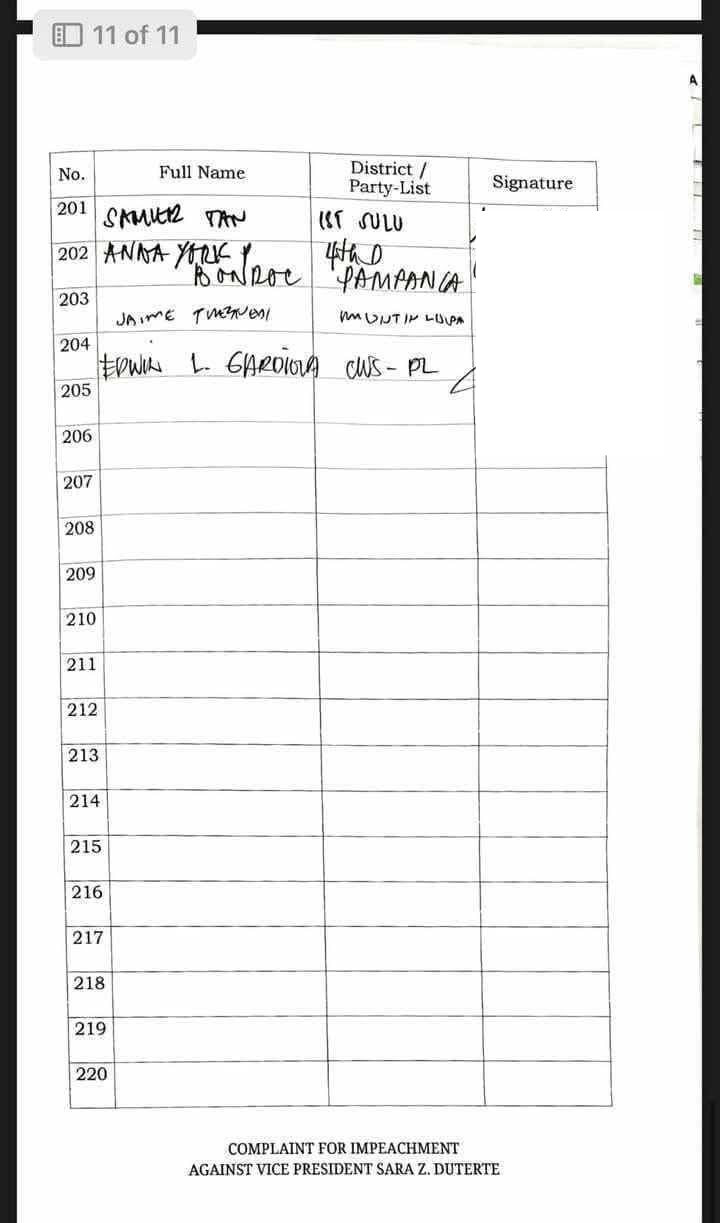 11 of 11
A
No. Full Name District / Party-List Signature
201 SAMIER TAN 1ST SULU
202 ANNA YORK P BONDOC 4th D PAMPANGA
203 JAIME MUNTINLUPA
204 EDWIN L. GARDIOLA CWS - PL
205
206
207
208
209
210
211
212
213
214
215
216
217
218
219
220
COMPLAINT FOR IMPEACHMENT
AGAINST VICE PRESIDENT SARA Z. DUTERTE